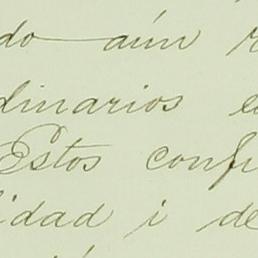 do aún
dinarios
Estos conf
idad i de